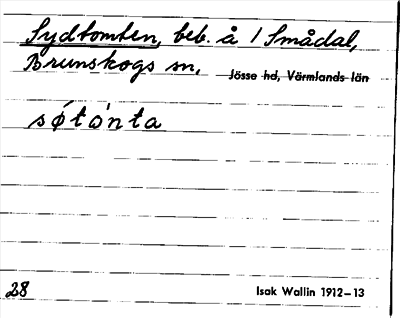 Sydtomten, beb. å 1 Smådal,
Brunskogs sn,
Jösse hd, Värmlands län
sǿtǝ̀nta
28
Isak Wallin 1912–13